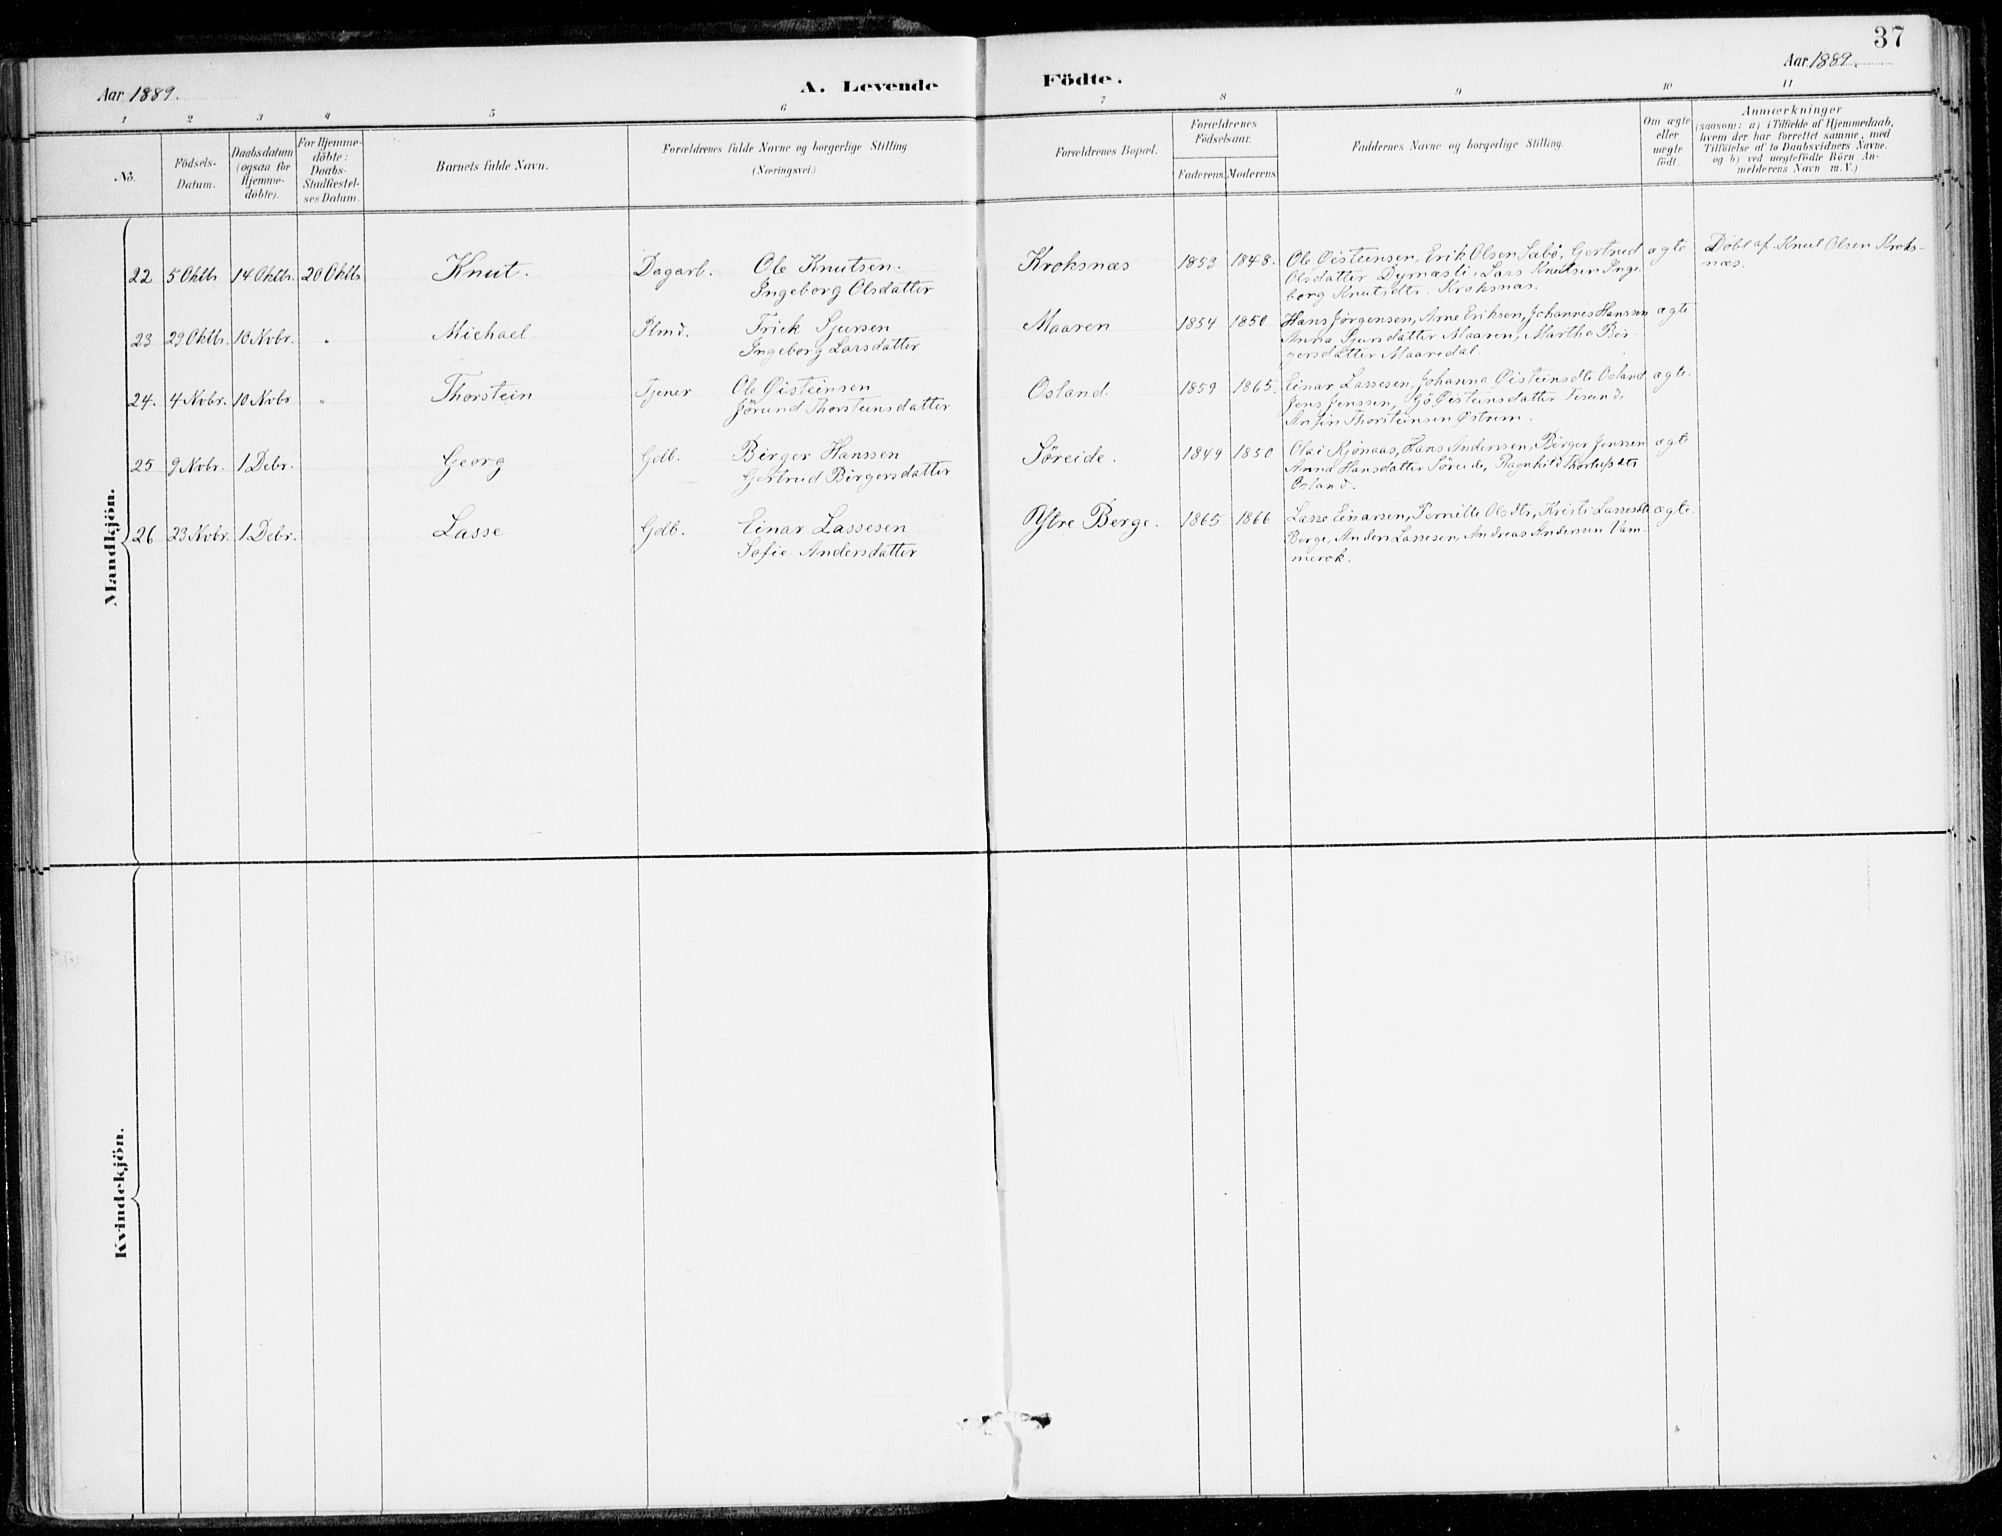 37
Aar 1889.
A. Levende Födte.
Aar 1889.
1 2 3 4 5 6 7 8 9 10 11
No.
Födsels-
Datum.
Daabsdatum
(ogsaa for
Hjemme-
döbte).
For Hjemme-
döbte:
Daabs-
Stadfæstel-
ses Datum.
Barnets fulde Navn.
Forældrenes fulde Navne og borgerlige Stilling
(Næringsvei.)
Forældrenes Bopæl.
Forældrenes
Födselsaar.
Faderens. Moderens.
Faddernes Navne og borgerlige Stilling.
Om ægte
eller
uægte
födt.
Anmærkninger
(saasom: a) i Tilfælde af Hjemmedaab,
hvem der har forrettet samme, med
Tilföielse af to Daabsvidners Navne.
og b) ved uægtefödte Börn An-
melderens Navn m. V.)
Mandkjön.
22 5 Oktb. 14 Oktb. 20 Oktb. Knut. Dagarb. Ole Knutsen.
Ingeborg Olsdatter
Kroksnæs 1853 1848.
Ole Øisteinsen, Erik Olsen Sæbø, Gertrud
Olsdatter Dymæsli, Lars Knutsen Inge-
borg Knutsdtr. Kroksnæs.
ægte
Döbt af Knut Olsen Kroks-
næs.
23 29 Oktb. 10 Novbr. " Michael Plmd. Sjursen
Ingeborg Larsdatter
Maaren 1854 1850
Hans Jørgensen, Arne Eriksen, Johannes Hanssen
Anna Sjursdatter Maaren, Martha Bir-
gersdatter Maaredal.
ægte
24. 4 Novbr. 10 Novbr " Thorstein Tjener Ole Øisteinsen
Jörund Thorsteinsdatter
Osland. 1859 1865.
Einar Lassesen, Johanna Øisteinsdtr Osland
Jens Jenssen, Øisteinsdatter
Anfin Thorsteinsen Østrem.
ægte.
25 9 Novbr. 1 Debr. Georg Gdb. Birger Hanssen
Gertrud Birgersdatter
Søreide. 1849 1850
Olai Kjønaas, Hans Anderssen, Birger Jenssen
Anna Hansdatter Søreide, Ragnhild
Osland.
ægte
26 23 Novbr. 1 Debr. Lasse Gdb. Einar Lassesen
Sofie Andersdatter
Ytre Berge. 1865 1866
Lasse Einarsen, Pernille Olsdtr, Kristi Lassesdtr
Berge, Anders Lassesen, Andreas Andersen Vam-
merok.
ægte.
Kvindekjön.